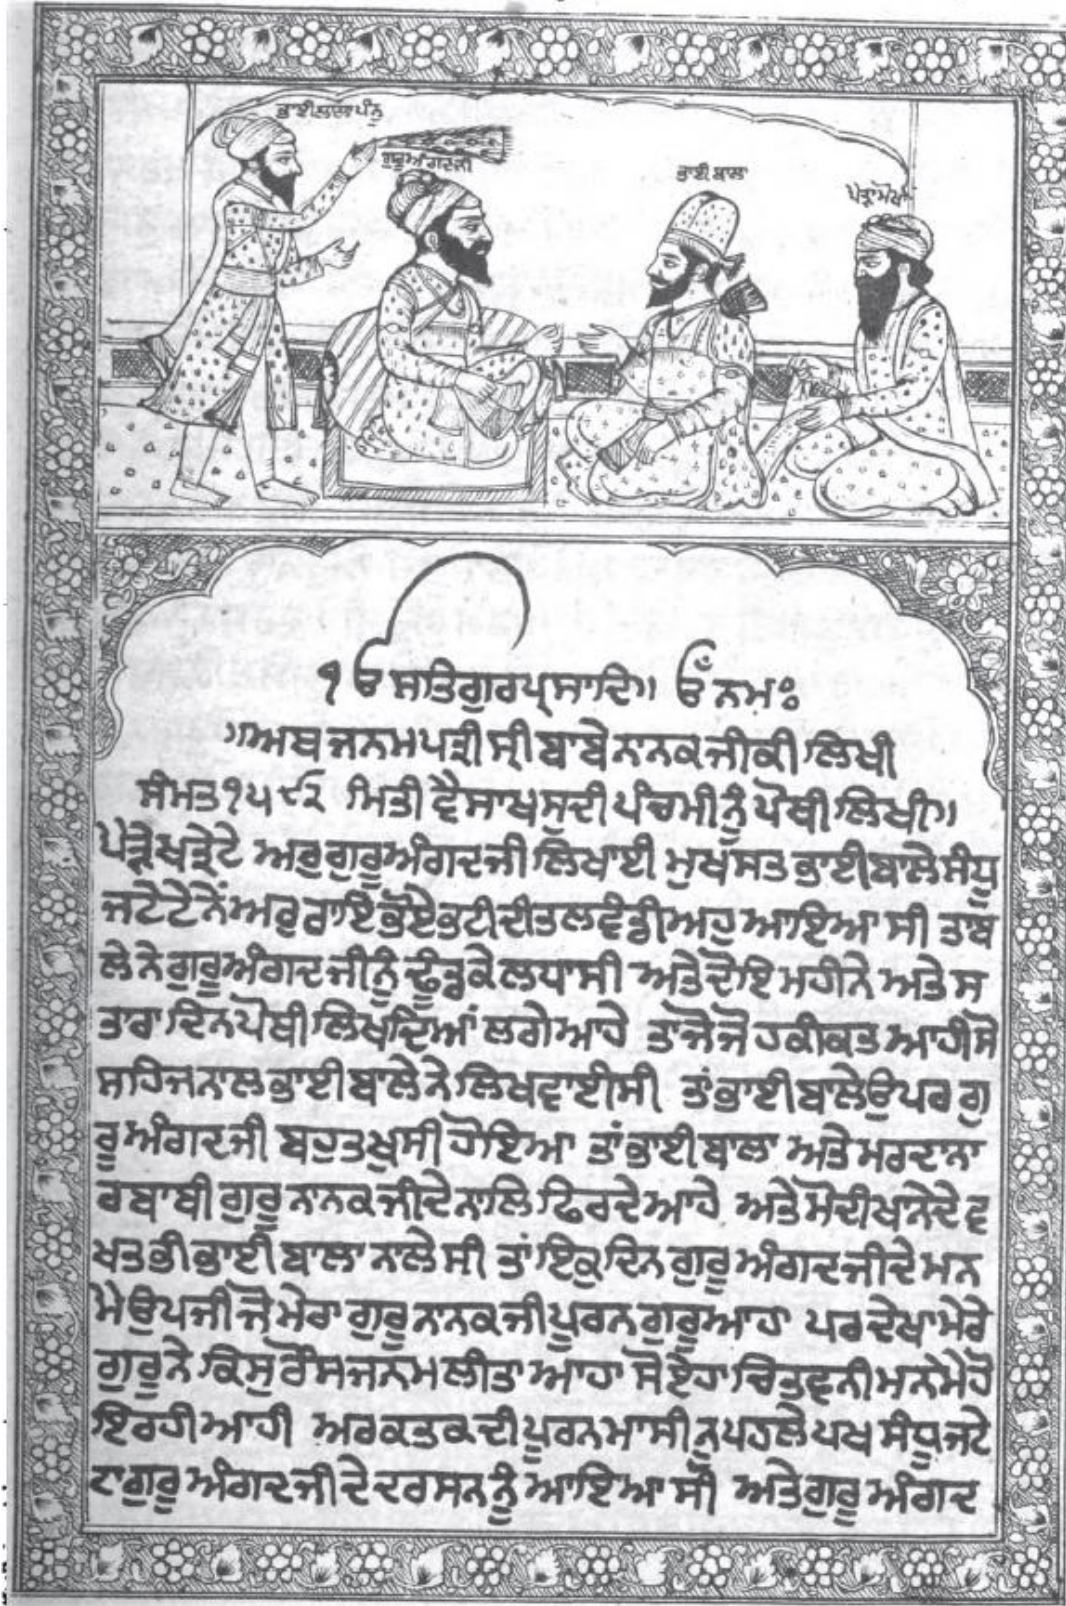 ਭਾਈ ਲਾਲਾ ਪੰਨੂ
ਗੁਰੂ ਅੰਗਦ ਜੀ
ਭਾਈ ਬਾਲਾ
ਪੈੜਾ ਮੋਖਾ
੧ਓ ਸਤਿਗੁਰਪ੍ਰਸਾਦਿ॥ ਓੱ ਨਮਃ
॥ਅਬ ਜਨਮਪਤ੍ਰੀ ਸ੍ਰੀ ਬਾਬੇ ਨਾਨਕ ਜੀ ਕੀ ਲਿਖੀ
ਸੰਮਤ ੧੫੯੨ ਮਿਤੀ ਵੈਸਾਖ ਸੁਦੀ ਪੰਚਮੀ ਨੂੰ ਪੋਥੀ ਲਿਖੀ॥
ਪੈੜੇ ਮੋਖੇ ਖਤ੍ਰੇਟੇ ਅਰੁ ਗੁਰੂ ਅੰਗਦ ਜੀ ਲਿਖਾਈ ਮੁਖ ਸਤ ਭਾਈ ਬਾਲੇ ਸੰਧੂ
ਜਟੇਟੇ ਨੇਂ ਅਰੁ ਰਾਇ ਭੋਏ ਭਟੀ ਦੀ ਤਲਵੰਡੀਅਹੁ ਆਇਆ ਸੀ ਤਾਬ
ਲੇ ਨੇ ਗੁਰੂ ਅੰਗਦ ਜੀ ਨੂੰ ਢੂੰਡਕੇ ਲਧਾ ਸੀ ਅਤੇ ਦੋਇ ਮਹੀਨੇ ਅਤੇ ਸ
ਤਾਰਾ ਦਿਨ ਪੋਥੀ ਲਿਖਦਿਆਂ ਲਗੇ ਆਹੇ ਤਾ ਜੋ ਜੋ ਹਕੀਕਤ ਆਹੀ ਸੋ
ਸਹਿਜ ਨਾਲ ਭਾਈ ਬਾਲੇ ਨੇ ਲਿਖਵਾਈ ਸੀ ਤਾਂ ਭਾਈ ਬਾਲੇ ਉਪਰ ਗੁ
ਰੂ ਅੰਗਦ ਜੀ ਬਹੁਤ ਖੁਸੀ ਹੋਇਆ ਤਾਂ ਭਾਈ ਬਾਲਾ ਅਤੇ ਮਰਦਾਨਾ
ਰਬਾਬੀ ਗੁਰੂ ਨਾਨਕ ਜੀ ਦੇ ਨਾਲਿ ਫਿਰਦੇ ਆਹੇ ਅਤੇ ਮੋਦੀਖਾਨੇ ਦੇ ਵ
ਖਤ ਭੀ ਭਾਈ ਬਾਲਾ ਨਾਲੇ ਸੀ ਤਾਂ ਇਕੁ ਦਿਨ ਗੁਰੂ ਅੰਗਦ ਜੀ ਦੇ ਮਨ
ਮੈ ਉਪਜੀ ਜੋ ਮੇਰਾ ਗੁਰੂ ਨਾਨਕ ਜੀ ਪੂਰਨ ਗੁਰੂ ਆਹਾ ਪਰ ਦੇਖਾ ਮੇਰੇ
ਗੁਰੂ ਨੇ ਕਿਸੁ ਰੌਸ ਜਨਮ ਲੀਤਾ ਆਹਾ ਸੋ ਏਹਾ ਚਿਤਵਨੀ ਮਨ ਮੇ ਹੋ
ਇ ਰਹੀ ਆਹੀ ਅਰ ਕਤਕ ਦੀ ਪੂਰਨਮਾਸੀ ਨੂ ਪਹਲੇ ਪਖ ਸੰਧੂ ਜਟੇ
ਟਾ ਗੁਰੂ ਅੰਗਦ ਜੀ ਦੇ ਦਰਸਨ ਨੂੰ ਆਇਆ ਸੀ ਅਤੇ ਗੁਰੂ ਅੰਗਦ